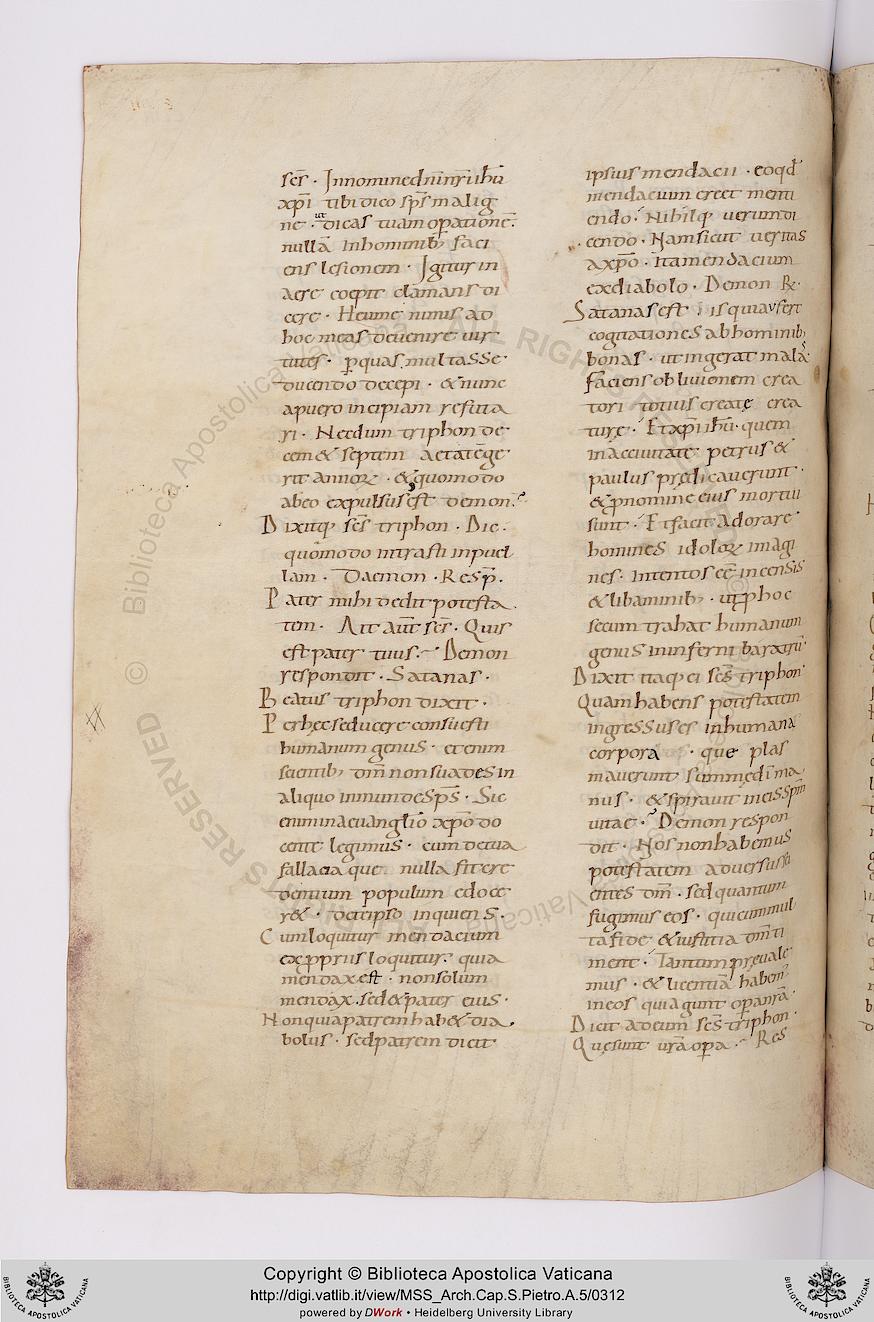 sc̄s · Innomine dn̄i nr̄i ihū
xp̄i tibi dico sp̄s malig
ne · ut dicas tuam op̄atione
nullā inhominib; faci
ens lesionem · Igitur in
aere coepit clamans di
cere · Heume nimis ad
hoc meas devenire vir
tutes · p quas multas se
ducendo decepi · & nunc
apuero incipiam restita
ri · Necdum triphon de
cem & septem aetatē ge
rit annoꝝ · & quomodo
abeo expulsus est demon ·
Dixitq; sc̄s triphon · Dic ·
quomodo intrasti inpuel
lam · Daemon · Resp̄ ·
Pater mihi dedit potesta
tem · Ait aūt sc̄s · Quis
est pater tuus · Demon
respondit · Satanas ·
Beatus triphon dixit ·
Per hęc seducere consuesti
humanum genus · etenim
scientib; dm̄ non suades in
aliquo inmunde sp̄s · Sic
enim in aeuanglio xp̄o do
cente legimus · cum de tua
fallacia que nulla sit cre
dentium populum edoce
r& · de te ipso inquiens ·
Cum loquitur mendacium
ex p̄priis loquitur · quia
mendax est · non solum
mendax · sed & pater eius ·
Non quia patrem hab& dia
bolus · sed patrem dicit
ipsius mendacii · eo qd̄
mendacium creet menti
endo · Nihilq; verum di
cendo · Nam sicut veritas
a xp̄o · ita mendacium
ex diabolo · Demon R̄ ·
Satanas est · is qui aufert
cogitationes ab hominib;
bonas · ut ingerat mala
faciens oblivionem crea
tori totius create crea
ture · Et xp̄i ihū · quem
inac civitate petrus &
paulus predicaverunt ·
& p nomine eius mortui
sunt · Et facit adorare
homines idoloꝝ imagi
nes · intentos eē incensis
& libaminib; · ut p hoc
secum trahat humanum
genus ininferni baratrū
Dixit itaq; ei sc̄s triphon
Quam habens potestatem
ingressus es inhumana
corpora · que plas
maverunt summe dī ma
nus · & spiravit in eis sp̄m
vitae · Demon respon
dit · Nos non habemus
potestatem adversus
entes dm̄ · sed quantum
fugimus eos · qui cum mul
ta fide & iustitia
ment · Tantum prevale
mus · & licentiā habem
in eos qui agunt op̄a nr̄a ·
Dicit ad eum sc̄s triphon ·
Que sunt vr̄a op̄a · Res
Copyright © Biblioteca Apostolica Vaticana
http://digi.vatlib.it/view/MSS_Arch.Cap.S.Pietro.A.5/0312
powered by DWork • Heidelberg University Library